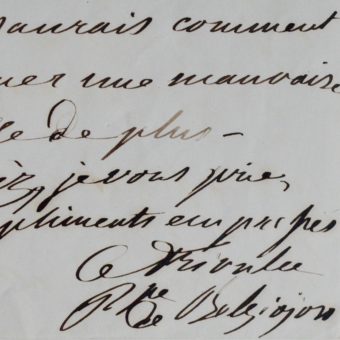 saurais comment
uer une mauvaise
de plus -
je vous prie,
pliments empressés
Psse de Belgiojos